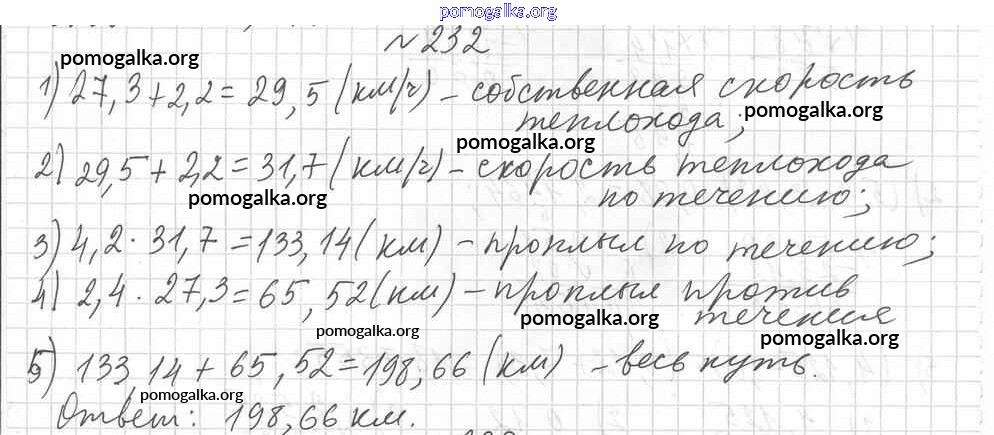 pomogalka.org
№232
pomogalka.org
1) 27,3 + 2,2 = 29,5 (км/ч) – собственная скорость
теплохода;
pomogalka.org
pomogalka.org
2) 29,5 + 2,2 = 31,7 (км/ч) – скорость теплохода
по течению;
pomogalka.org
3) 4,2 · 31,7 = 133,14 (км) – проплыл по течению;
4) 2,4 · 27,3 = 65,52 (км) – проплыл против
течения
pomogalka.org
pomogalka.org
pomogalka.org
5) 133,14 + 65,52 = 198,66 (км) – весь путь.
pomogalka.org
Ответ: 198,66 км.